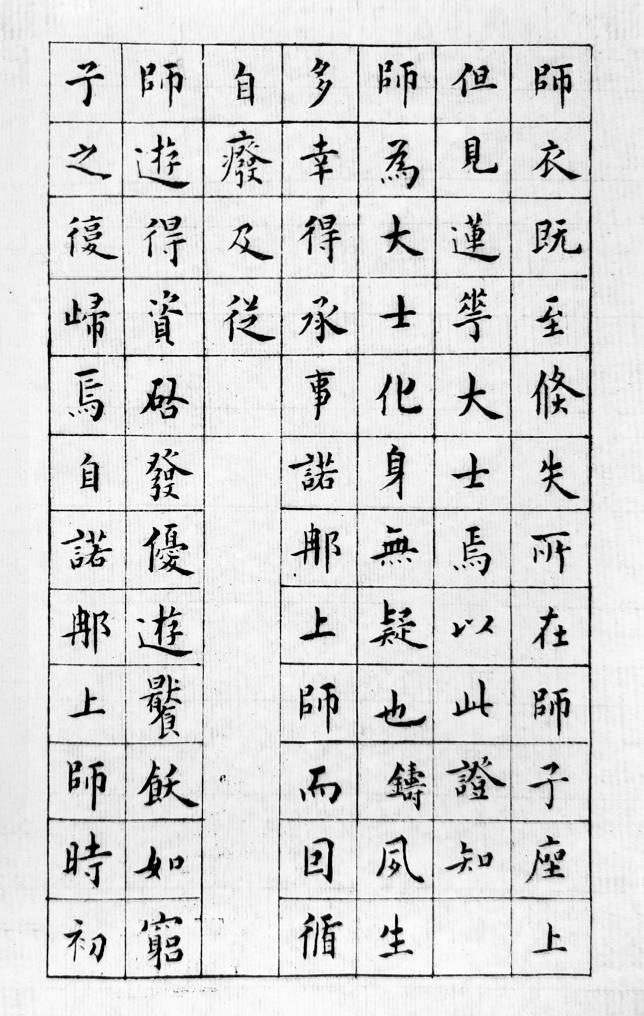 師衣既至倏失所在師子座上
但見蓮華大士焉以此證知
師為大士化身無疑也鑄夙生
多幸得承事諾那上師而因循
自癈及從
師遊得資啓發優遊饜飫如窮
子之復歸焉自諾那上師時初